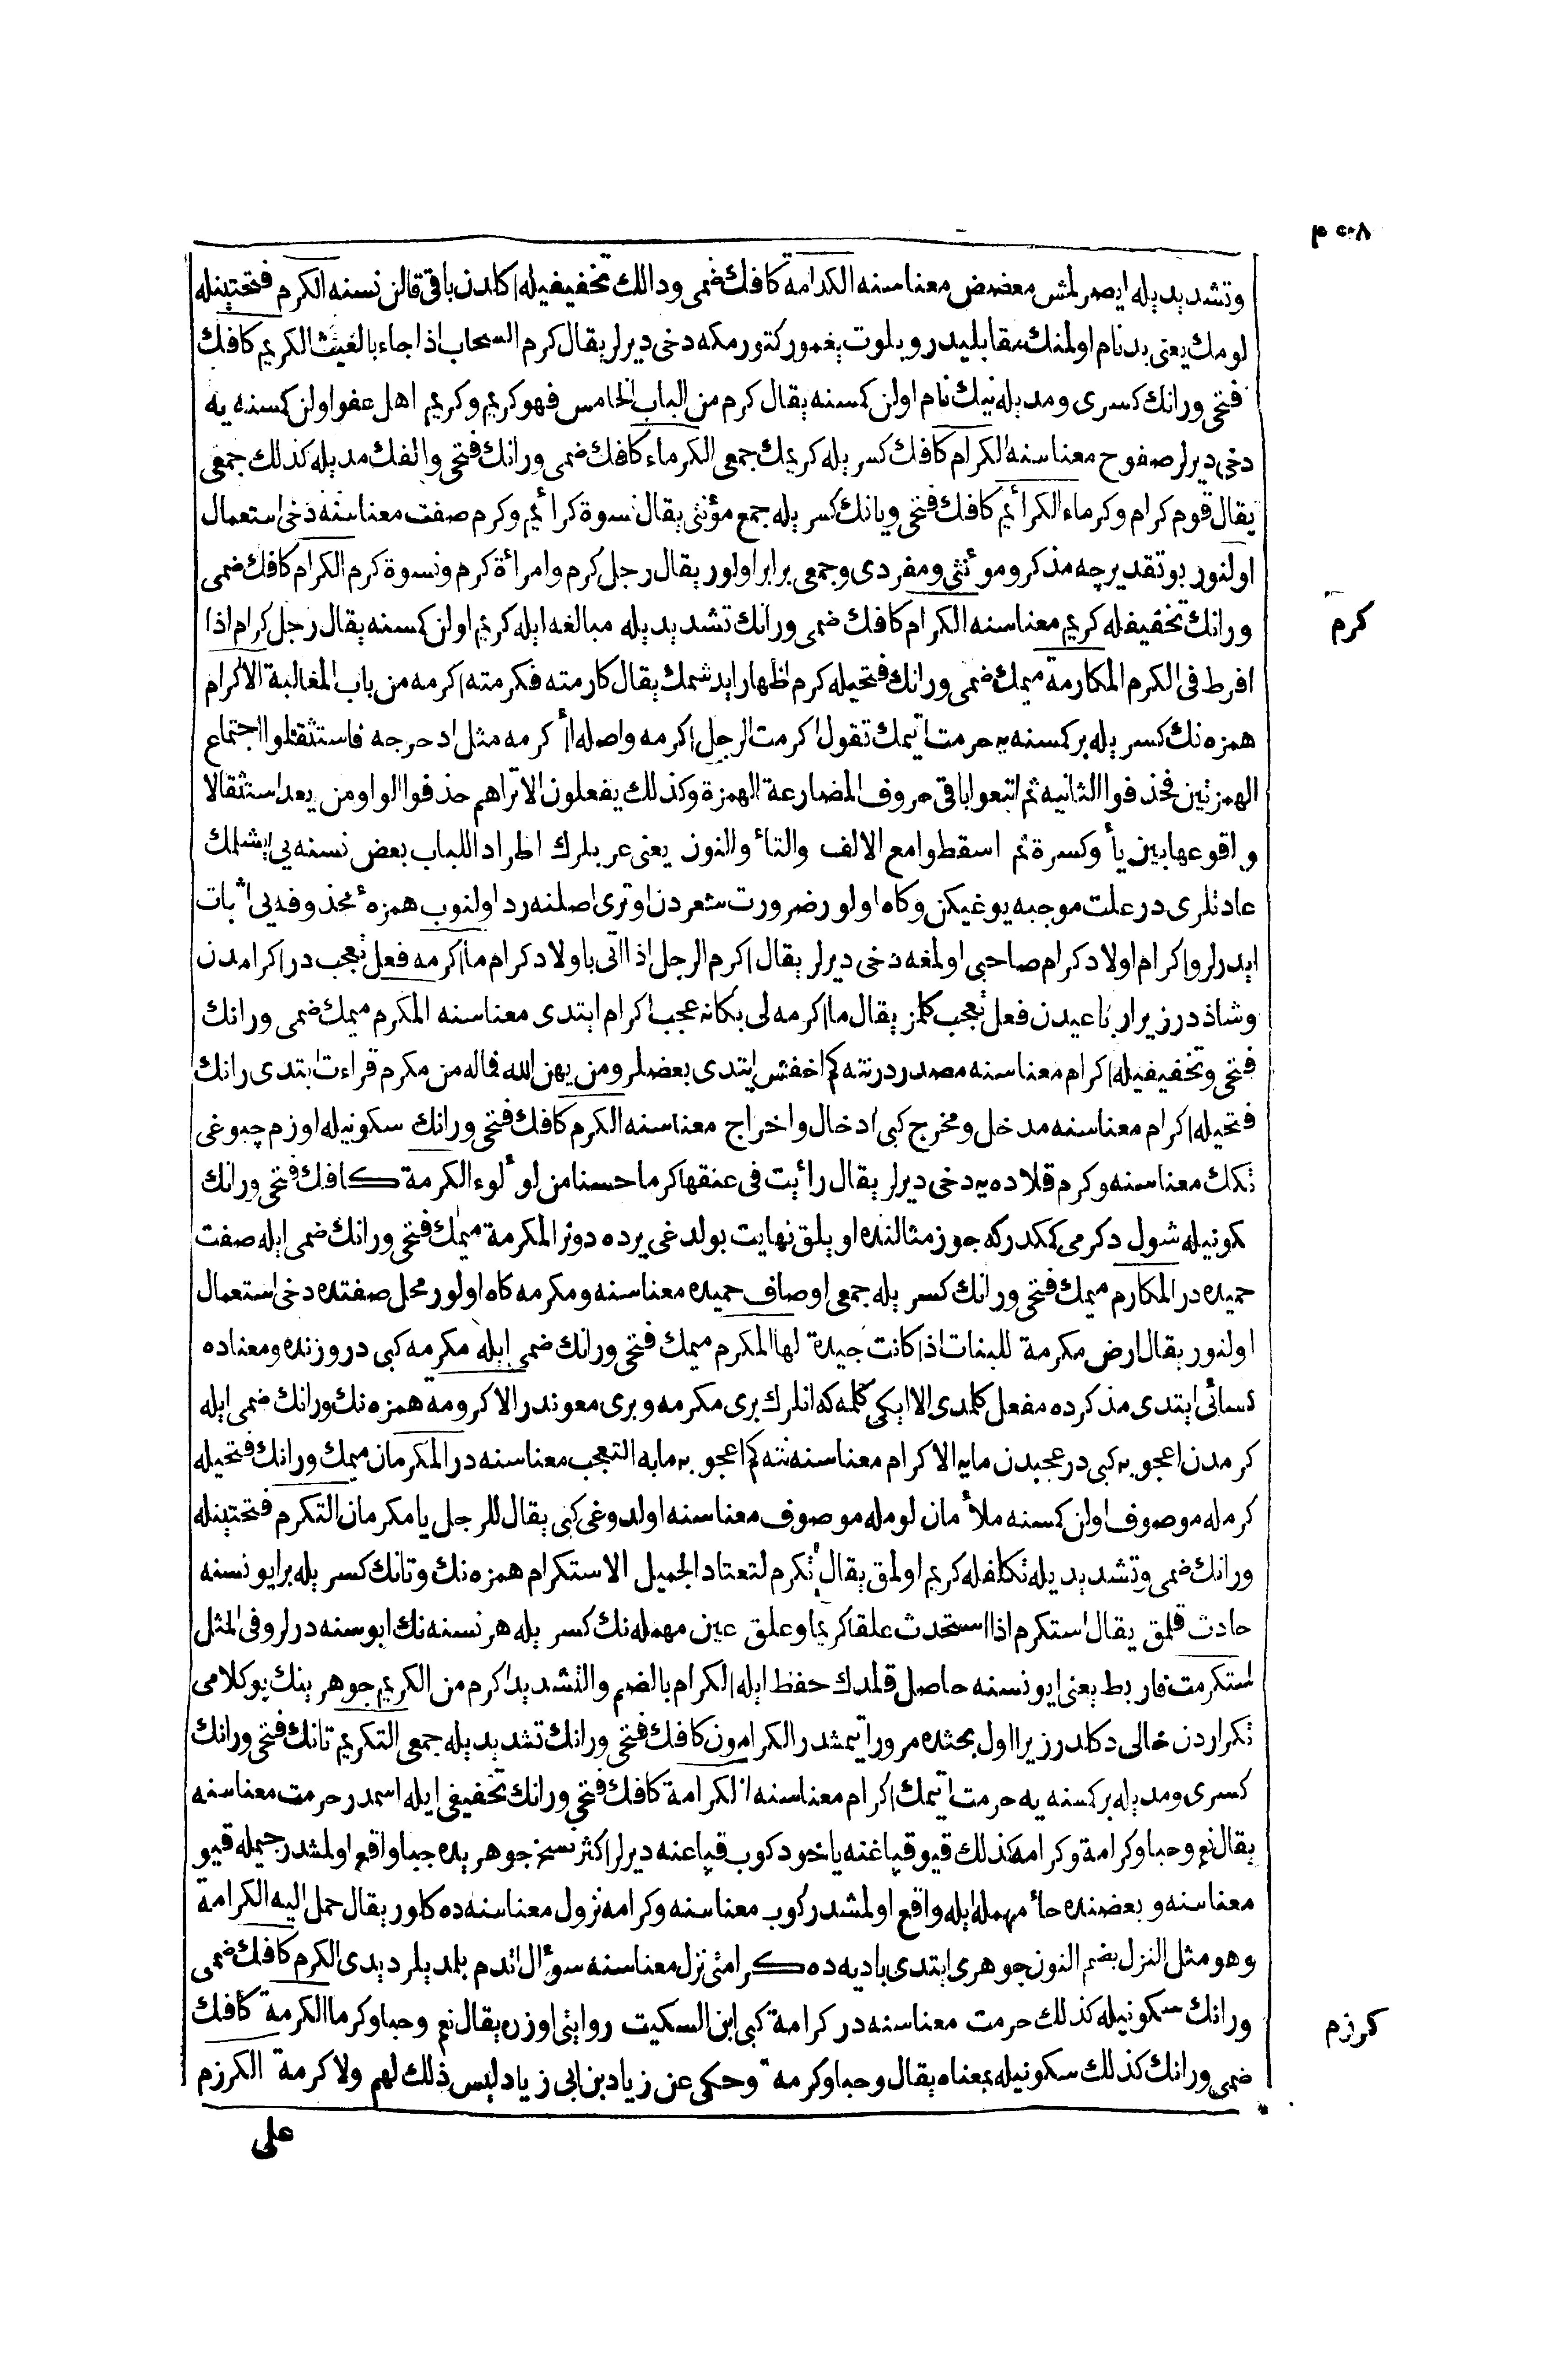 ٤٠٨
وتشديد يله ايصرلمش معضض معناسنه الكدامة كافك ضمى ودالك تخفيفيله اكلدن باقى قالن نسنه الكرم فتحتينله
لومك يعنى بدنام اولمنك مقابليدر وبلوت يغمور كتورمكه دخى ديرلر يقال كرم السحاب اذا جاء بالغيث الكريم كافك
فتحى ورانك كسرى ومديله نيك نام اولن كمسنه يقال كرم من الباب الخامس فهو كريم وكريم اهل عفو اولن كمسنه يه
دخى ديرلر صفوح معناسنه الكرام كافك كسريله كريمك جمعى الكرماء كافك ضمى ورانك فتحى والفك مديله كذلك جمعى
يقال قوم كرام وكرماء الكرائم كافك فتحى ويانك كسريله جمع مؤنثى يقال نسوة كرائم وكرم صفت معناسنه دخى استعمال
اولنور بو تقديرجه مذكر ومؤنثى ومفردى وجمعى برابر اولور يقال رجل كرم وامرأة كرم ونسوة كرم الكرام كافك ضمى
كرم
ورانك تخفيفله كريم معناسنه الكرام كافك ضمى ورانك تشديديله مبالغه ايله كريم اولن كمسنه يقال رجل كرام اذا
افرط فى الكرم المكارمة ميمك ضمى ورانك فتحيله كرم اظهار ايدشمك يقال كارمته فكرمته اكرمه من باب المغالبة الاكرام
همزه نك كسريله بر كمسنه يه حرمت ايتمك تقول اكرمت الرجل اكرمه واصله أأكرمه مثل ادحرجه فاستثقلوا اجتماع
الهمزتين فحذفوا الثانيه ثم اتبعوا باقى حروف المضارعة الهمزة وكذلك يفعلون الا تراهم حذفوا الواو من يعد استثقالا
وقوعها بين يأ وكسرة ثم اسقطوا مع الالف والتأ والنون يعنى عربلرك اطرادا للباب بعض نسنه يى ايشلمك
عادتلرى در علت موجبه يوغيكن وكاه اولور ضرورت شعردن اوترى اصلنه رد اولنوب همزۀ محذوفه يى اثبات
ايدرلر واكرام اولاد كرام صاحبى اولمغه دخى ديرلر يقال اكرم الرجل اذا اتى باولاد كرام ما اكرمه فعل تعجب در اكرامدن
وشاذدر زيرا رباعيدن فعل تعجب كلمز يقال ما اكرمه لى بكا نه عجب اكرام ايتدى معناسنه المكرم ميمك ضمى ورانك
فتحى وتخفيفيله اكرام معناسنه مصدردر نته كم اخفش ايتدى بعضلر ومن يهن الله فماله من مكرم قراءت ايتدى رانك
فتحيله اكرام معناسنه مدخل ومخرج كبى ادخال واخراج معناسنه الكرم كافك فتحى ورانك سكونيله اوزم چبوغى
تكك معناسنه وكرم قلاده يه دخى ديرلر يقال رأيت فى عنقها كرما حسنا من لؤلؤ الكرمة كافك فتحى ورانك
كونيله شول دكرمى كمكدر كه جوز مثالنده اويلق نهايت بولدغى يرده دونر المكرمة ميمك فتحى ورانك ضمى ايله صفت
حميده در المكارم ميمك فتحى ورانك كسريله جمعى اوصاف حميده معناسنه ومكرمه كاه اولور محل صفتده دخى استعمال
اولنور يقال ارض مكرمة للبنات اذا كانت جيدة لها المكرم ميمك فتحى ورانك ضمى ايله مكرمه كبى در وزنده ومعناده
كسائى ايتدى مذكرده مفعل كلمدى الا ايكى كلمه كه انلرك برى مكرمه وبرى معوندر الاكرومه همزه نك ورانك ضمى ايله
كرمدن اعجوبه كبى در عجبدن ما به الاكرام معناسنه نته كم اعجوبه ما به التعجب معناسنه در المكرمان ميمك ورانك فتحيله
كرمله موصوف اولن كمسنه ملأمان لومله موصوف معناسنه اولدوغى كبى يقال للرجل يا مكرمان التكرم فتحتينله
ورانك ضمى وتشديديله تكلفله كريم اولمق يقال تكرم لتعتاد الجميل الاستكرام همزه نك وتانك كسريله بر ايو نسنه
حادث قلمق يقال استكرم اذا استحدث علقا كريما وعلق عين مهمله نك كسريله هر نسنه نك ايوسنه درلر وفى المثل
استكرمت فاربط يعنى ايو نسنه حاصل قلدك حفظ ايله الكرام بالضم والتشديد اكرم من الكريم جوهرينك بو كلامى
تكراردن خالى دكلدر زيرا اول بحثده مرور ايتمشدر الكرامون كافك فتحى ورانك تشديديله جمعى التكريم تانك فتحى ورانك
كسرى ومديله بر كمسنه يه حرمت ايتمك اكرام معناسنه الكرامة كافك فتحى ورانك تخفيفى ايله اسمدر حرمت معناسنه
يقال نعم وحبا وكرامة وكرامه كذلك قيو قپاغنه ياخود كوب قپاغنه ديرلر اكثر نسخ جوهريده جبا واقع اولمشدر جيمله قيو
معناسنه وبعضنده حأ مهمله ايله واقع اولمشدر كوب معناسنه وكرامه نزول معناسنه ده كلور يقال حمل اليه الكرامة
وهو مثل النزل بضم النون جوهرى ايتدى باديه ده كرامتى نزل معناسنه سؤال اتدم بلمديلر ديدى الكرم كافك ضمى
ورانك سكونيله كذلك حرمت معناسنه در كرامة كبى ابن السكيت روايتى اوزره يقال نعم وحبا وكرما الكرمة كافك
كرزم
ضمى ورانك كذلك سكونيله بمعناه يقال وحبا وكرمه وحكى عن زياد بن ابى زياد ليس ذلك لهم ولا كرمة الكرزم
على